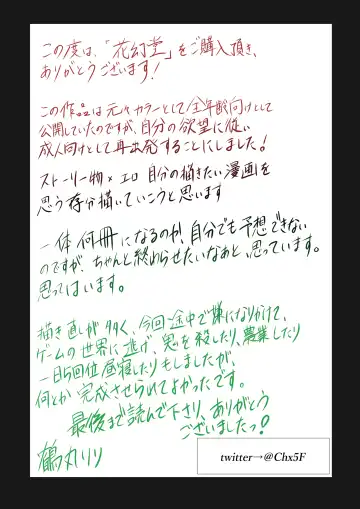 この度は、「花幻堂」をご購入頂き、
ありがとうございます!
この作品は元々カラーとして全年齢向けとして
公開していたのですが、自分の欲望に従い
成人向けとして再出発することにしました!
ストーリー物×エロ 自分の描きたい漫画を
思う存分描いていこうと思います
一体何冊になるのか、自分でも予想できない
のですが、ちゃんと終わらせたいなあと、思っています。
思ってはいます。
描き直しが多く、今回途中で嫌になりかけて、
ゲームの世界に逃げ、鬼を殺したり、農業したり
一日5回位昼寝したりもしましたが、
何とか完成させられてよかったです。
最後まで読んで下さり、ありがとう
ございましたっ!
鶴丸リリ
twitter→@Chx5F